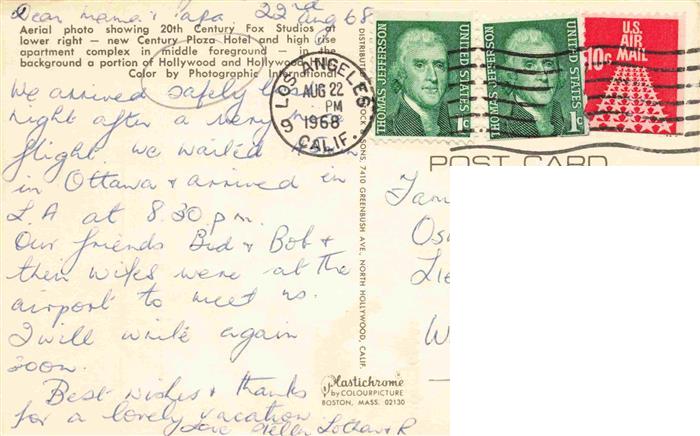 Dear Mama & Papa 22nd Aug 68
Aerial photo showing 20th Century Fox Studios at
lower right – new Century Plaza Hotel and high rise
apartment complex in middle foreground – in the
background a portion of Hollywood and Hollywood
Color by Photographic International
We arrived safely last
night after a very nice
flight. We waited
in Ottawa & arrived in
L.A at 8.30 p.m.
Our friends Bud & Bob &
their wifes were at the
airport to meet us.
I will write again
soon.
Best wishes & thanks
for a lovely vacation
Love Helen
LOS ANGELES
AUG 22
PM
1968
CALIF.
THOMAS JEFFERSON
UNITED STATES
1c
THOMAS JEFFERSON
UNITED STATES
1c
U.S.
AIR
MAIL
10c
POST CARD
7410 GREENBUSH AVE., NORTH HOLLYWOOD, CALIF.
Plastichrome
by COLOURPICTURE
BOSTON, MASS. 02130